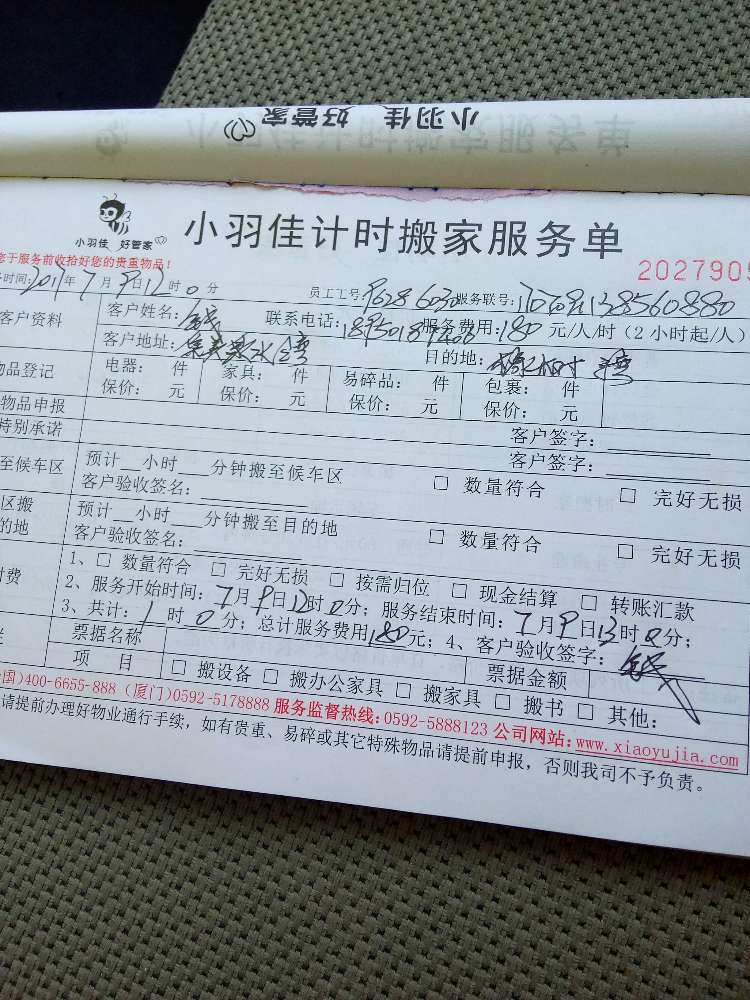 小羽佳 好管家
小羽佳计时搬家服务单
小羽佳 好管家
小羽佳计时搬家服务单
2027909
您于服务前收拾好您的贵重物品！
时间：2017年7月9日12时0分 员工工号：9628 6030 服务联号：138560880
客户资料 客户姓名：钱 联系电话： 服务费用：180元/人/时（2小时起/人）
客户地址：集美 水 湾 目的地： 湾
物品登记 电器： 件 家具： 件 易碎品： 件 包裹： 件
保价： 元 保价： 元 保价： 元 保价： 元
物品申报 客户签字：
特别承诺 客户签字：
至候车区 预计 小时 分钟搬至候车区 □ 数量符合 □ 完好无损
客户验收签名：
区搬 预计 小时 分钟搬至目的地 □ 数量符合 □ 完好无损
的地 客户验收签名：
付费 1、□ 数量符合 □ 完好无损 □ 按需归位 □ 现金结算 □ 转账汇款
2、服务开始时间：7月9日12时0分；服务结束时间：7月9日13时0分；
3、共计：1时0分；总计服务费用180元；4、客户验收签字：钱
票据名称 票据金额
项 目 □ 搬设备 □ 搬办公家具 □ 搬家具 □ 搬书 □ 其他：
国)400-6655-888 (厦门)0592-5178888 服务监督热线：0592-5888123 公司网站：www.xiaoyujia.com
请提前办理好物业通行手续，如有贵重、易碎或其它特殊物品请提前申报，否则我司不予负责。